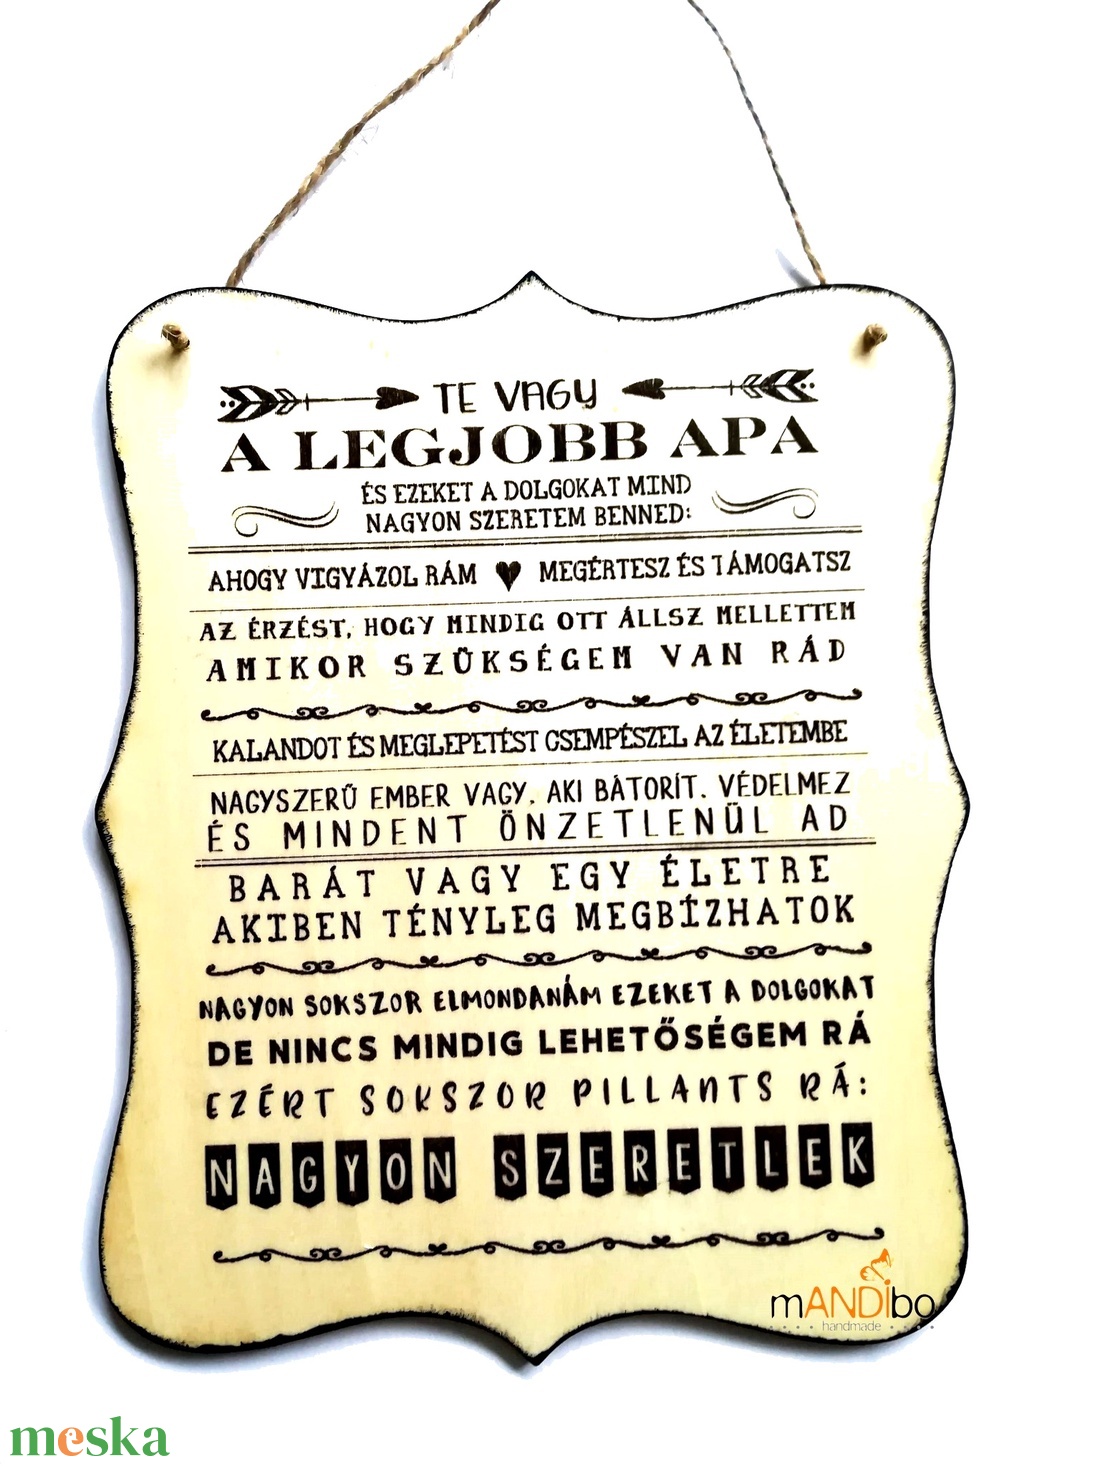 TE VAGY
A LEGJOBB APA
ÉS EZEKET A DOLGOKAT MIND
NAGYON SZERETEM BENNED:
AHOGY VIGYÁZOL RÁM ♥ MEGÉRTESZ ÉS TÁMOGATSZ
AZ ÉRZÉST, HOGY MINDIG OTT ÁLLSZ MELLETTEM
AMIKOR SZÜKSÉGEM VAN RÁD
KALANDOT ÉS MEGLEPETÉST CSEMPÉSZEL AZ ÉLETEMBE
NAGYSZERŰ EMBER VAGY, AKI BÁTORÍT, VÉDELMEZ
ÉS MINDENT ÖNZETLENÜL AD
BARÁT VAGY EGY ÉLETRE
AKIBEN TÉNYLEG MEGBÍZHATOK
NAGYON SOKSZOR ELMONDANÁM EZEKET A DOLGOKAT
DE NINCS MINDIG LEHETŐSÉGEM RÁ
EZÉRT SOKSZOR PILLANTS RÁ:
NAGYON SZERETLEK
mANDibo
handmade
meska